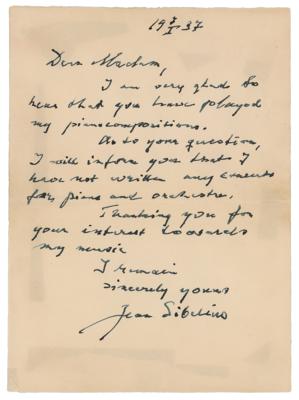 19 7/I 37
Dear Madam,
I am very glad to
hear that you have played
my pianocompositions.
As to your question,
I will inform you that I
have not written any concerts
for piano and orchestra.
Thanking you for
your interest towards
my music
I remain
sincerely yours
Jean Sibelius